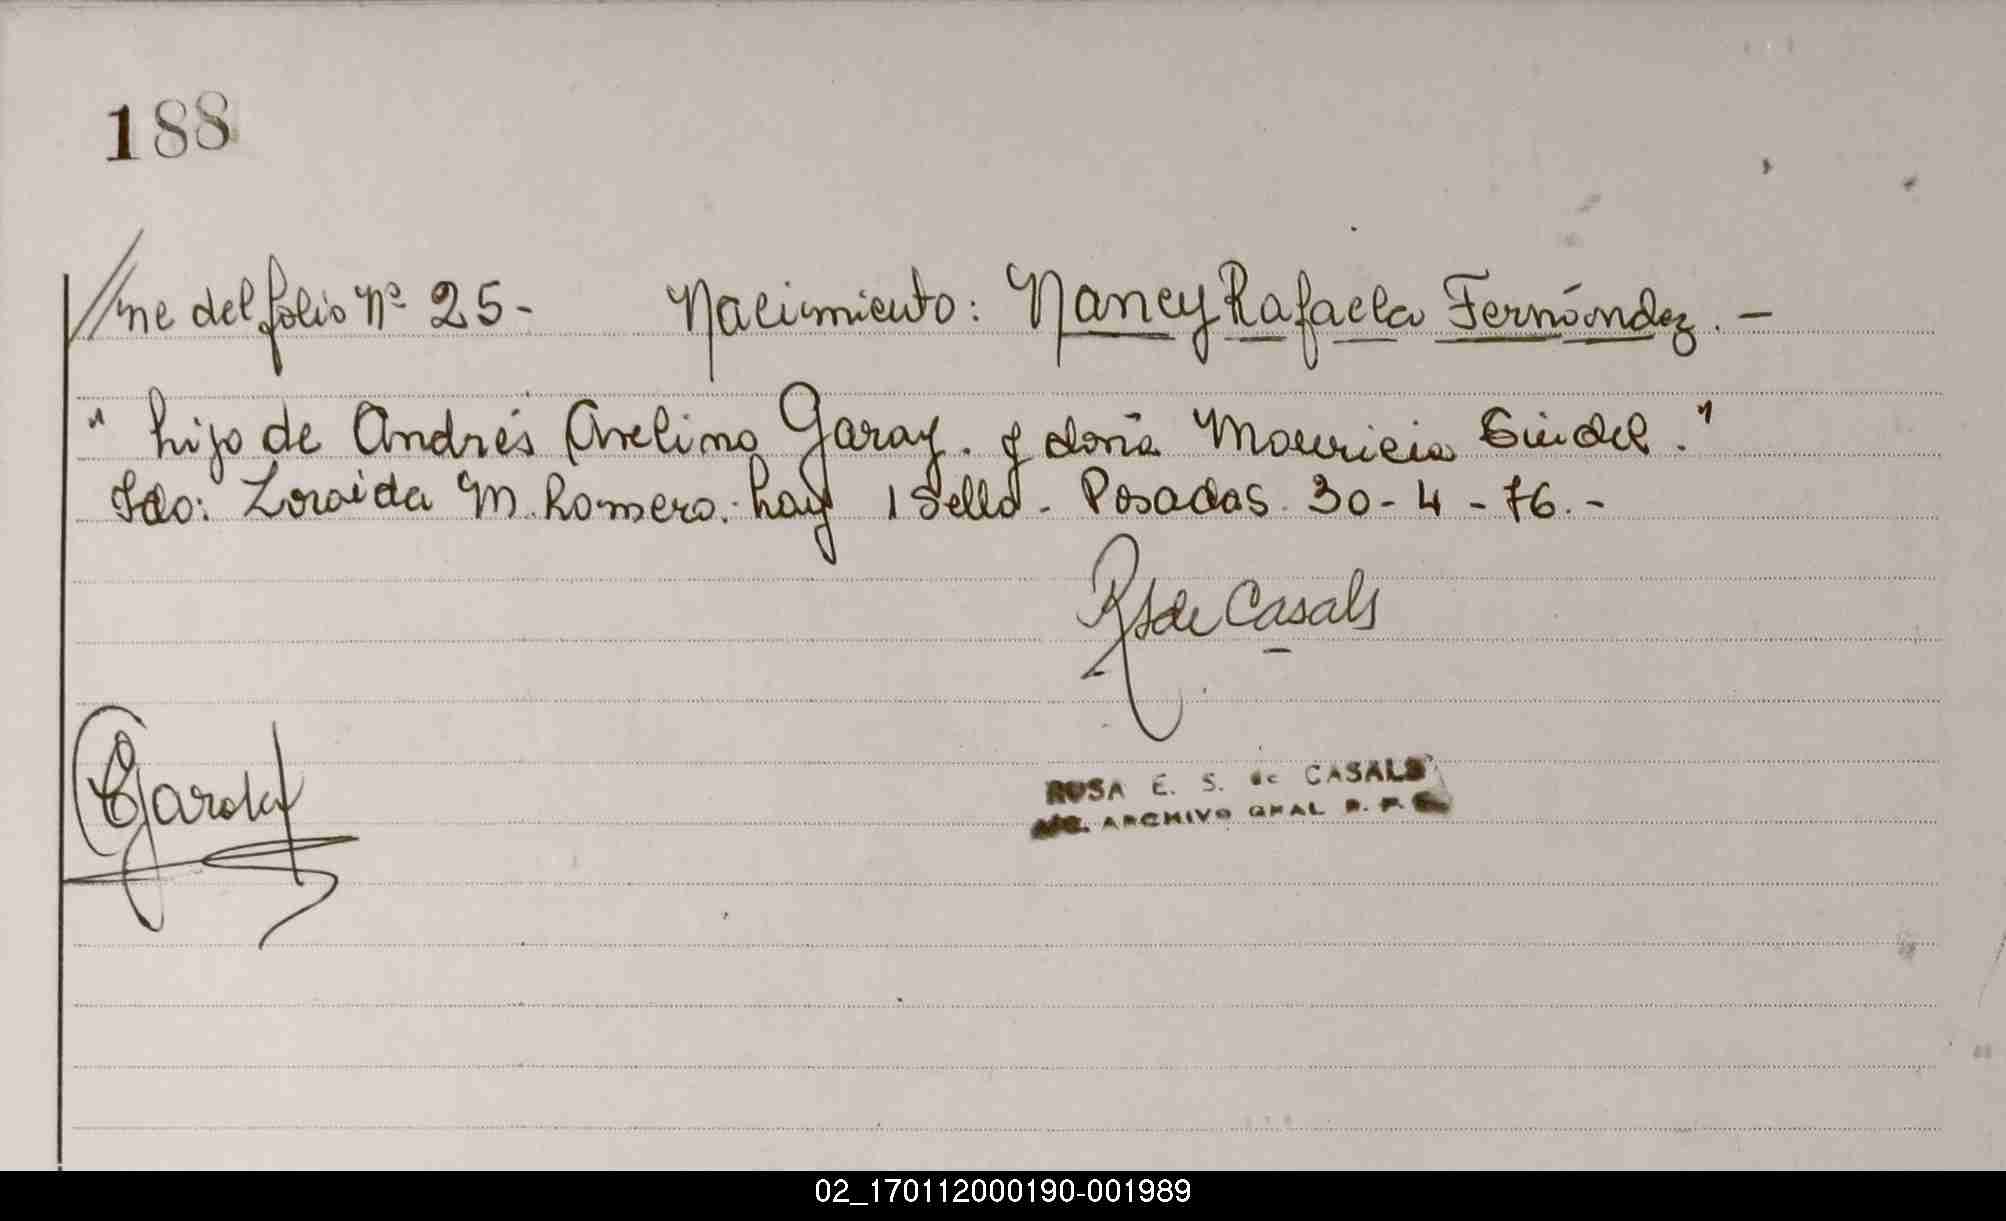 188
//ne del folio Nº 25 - Nacimiento: Nancy Rafaela Fernández. -
" hijo de Andrés Avelino Garay. y doña Mauricia Gindel."
Fdo: Zoraida M. Romero. hay 1 Sello - Posadas 30-4-76.-
RSde Casals
ROSA E. S. de CASALS
ARCHIVO GRAL R. P.
02_170112000190-001989